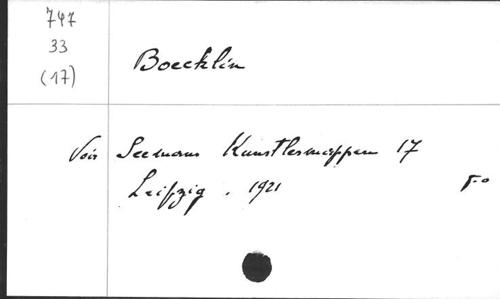 747
33
(17)
Boecklin
Voir Seemans Kunstlermappen 17
Leipzig . 1921 F-o